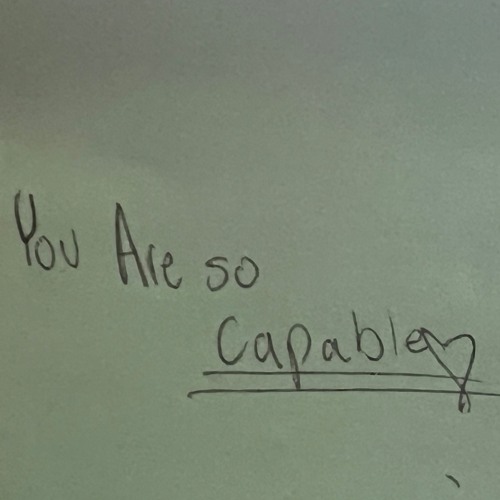 You Are so
Capable